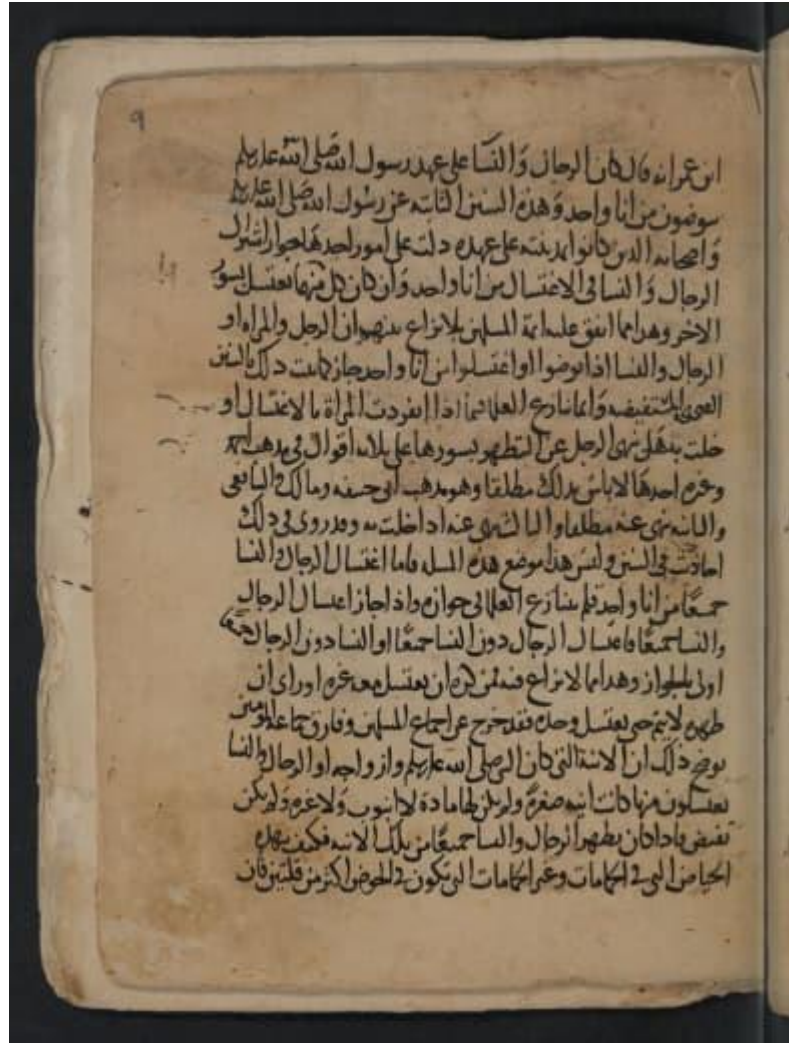 ٩
ابن عمر انه قال كان الرجال والنسا على عهد رسول الله صلى الله عليه وسلم
يتوضون من انا واحد وهذه السنن الثابته عن رسول الله صلى الله عليه وسلم
واصحابه الذين كانوا بمدينته على عهده دلت على امور احدها جواز اشتراك
الرجال والنسا في الاغتسال من انا واحد وان كان كل منهما يغتسل بسور
الاخر وهذا مما اتفق عليه ايمة المسلمين بلا نزاع بينهم ان الرجل والمراه او
الرجال والنسا اذا توضوا او اغتسلوا من انا واحد جاز كما ثبت ذلك بالسنن
الصحيحه المستفيضه وانما تنازع العلما فيما اذا انفردت المراة بالاغتسال او
خلت به هل ينهى الرجل عن التطهر بسورها على ثلاثه اقوال في مذهب احمد
وغيره احدها لا باس بذلك مطلقا وهو مذهب ابي حنيفه ومالك والشافعي
والثانيه ينهى عنه مطلقا والثالث ينهى عنه اذا خلت به وقد روي في ذلك
احاديث في السنن وليس هذا موضع هذه المسله فاما اغتسال الرجال والنسا
جميعًا من انا واحد فلم يتنازع العلما في جوازه واذا جاز اغتسال الرجال
والنسا جميعًا فاغتسال الرجال دون النسا جميعًا او النسا دون الرجال جميعًا
اولى بالجواز وهذا مما لا نزاع فيه فمن كره ان يغتسل معه غيره او راى ان
طهره لا يتم حتى يغتسل وحده فقد خرج عن اجماع المسلمين وفارق جماعة المومنين
يوضح ذلك ان الانية التي كان النبي صلى الله عليه وسلم وازواجه او الرجال والنسا
يغتسلون منها كانت انيه صغيرة ولم يكن لها مادة لا انبوب ولا غيره ولم يكن
تفيض فاذا كان يطهر الرجال والنسا جميعًا من تلك الانيه فكيف بهذه
الحياض التي في الحمامات وغير الحمامات التي تكون في الحوض اكثر من قلتين فان